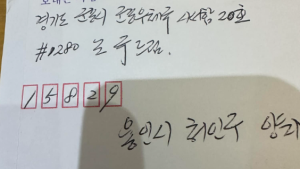 경기도 군포시 군포우체국 사서함 20호
#1280 노
15829
용인시 처인구 양지